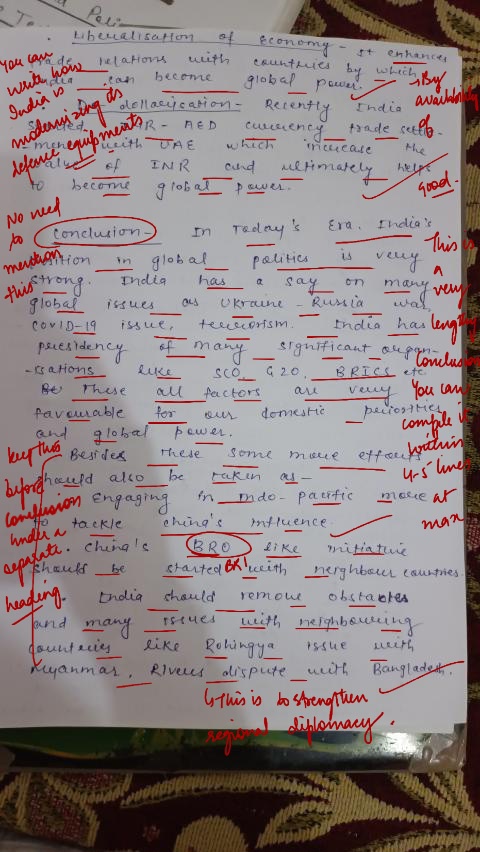 • Liberalisation of Economy - It enhances
trade relations with countries by which
India can become global power.
De-dollarisation - Recently India
started INR - AED currency trade settle-
ment with UAE which increase the
value of INR and ultimately helps
to become global power.
You can
write how
India is
modernizing its
defence equipments
→ By
availability
of
good.
No need
to
mention
this
Conclusion - In Today's Era. India's
position in global politics is very
strong. India has a say on many
global issues as Ukraine - Russia war,
COVID-19 issue, terrorism. India has
presidency of many significant organ-
-isations like SCO, G20, BRICS etc
These all factors are very
favourable for our domestic periorities
and global power.
This is
a
very
lengthy
conclusion
You can
compile it
within
4-5 lines
at
max
keep this
before
conclusion
under a
separate
heading.
Besides these some more efforts
should also be taken as -
Engaging in Indo-pacific more
to tackle China's influence.
• China's BRO like initiative
BRI
should be started with neighbour countries.
India should remove obstacles
and many issues with neighbouring
countries like Rohingya issue with
Myanmar, Rivers dispute with Bangladesh.
↳ This is to strengthen
regional diplomacy.